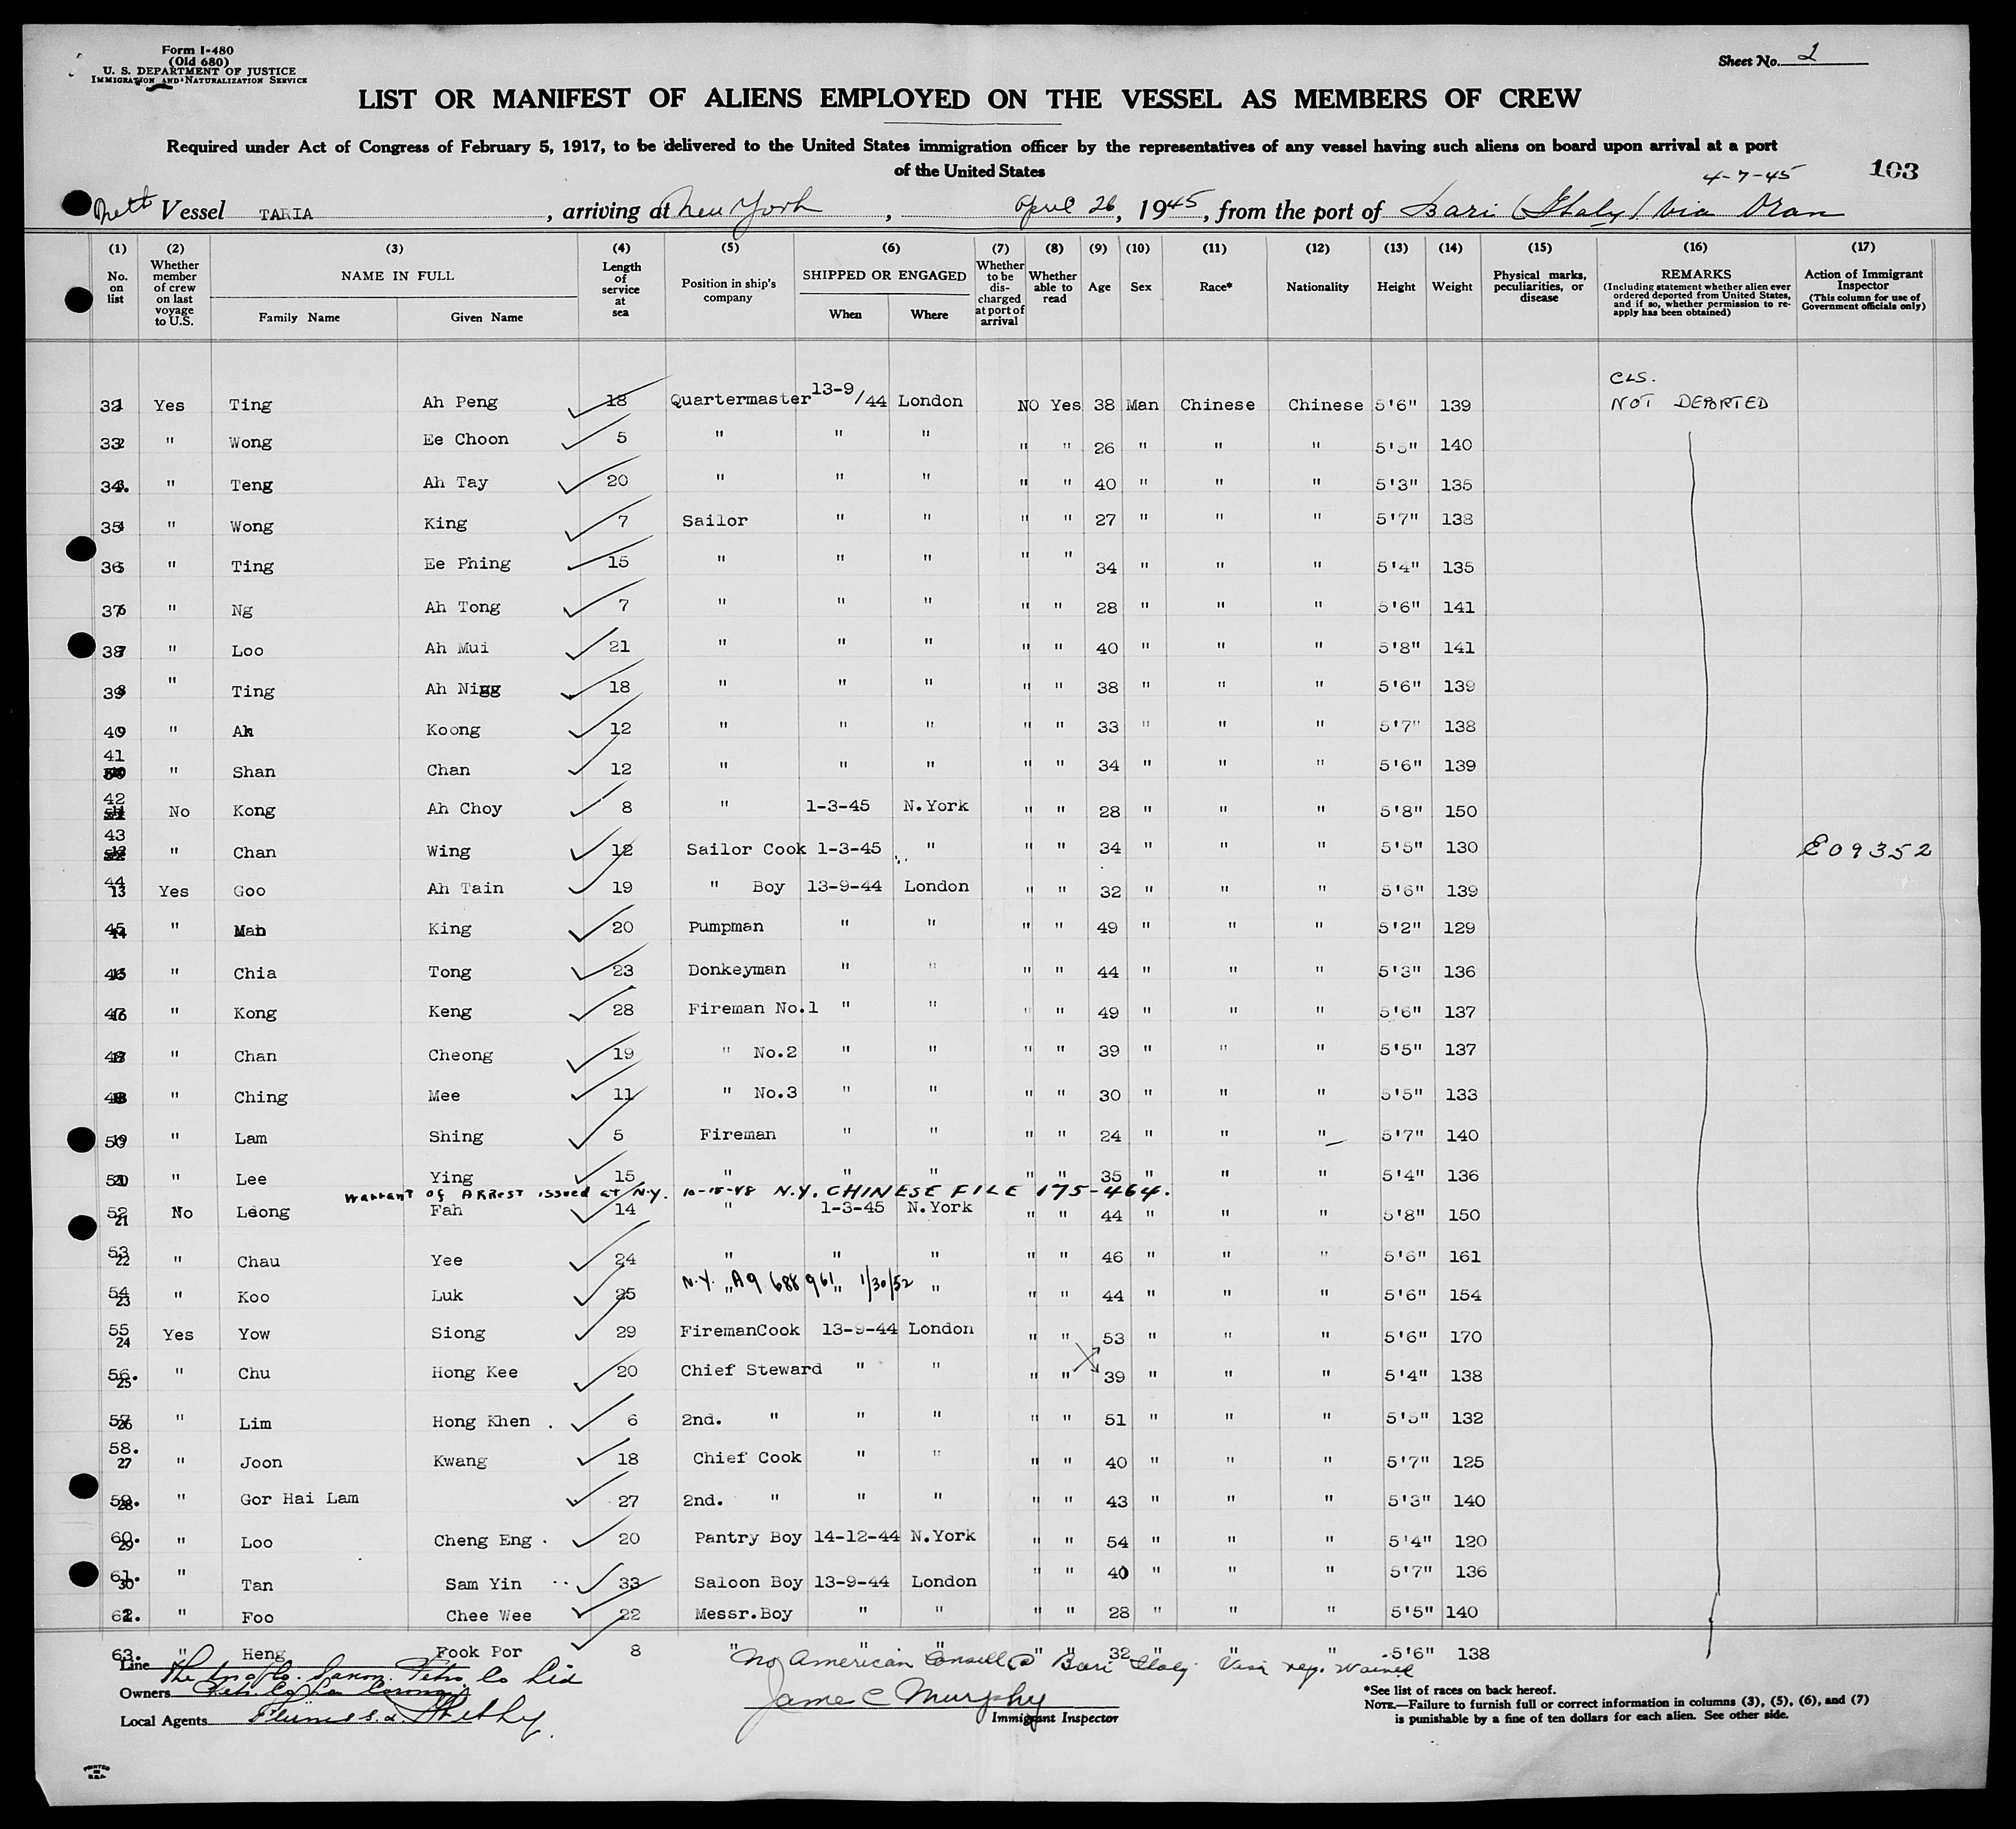 Form I-480
(Old 680)
U. S. DEPARTMENT OF JUSTICE
IMMIGRATION AND NATURALIZATION SERVICE
Sheet No. 2
LIST OR MANIFEST OF ALIENS EMPLOYED ON THE VESSEL AS MEMBERS OF CREW
Required under Act of Congress of February 5, 1917, to be delivered to the United States immigration officer by the representatives of any vessel having such aliens on board upon arrival at a port
of the United States
4-7-45
103
Vessel TARIA, arriving at New York, April 26, 1945, from the port of Bari (Italy) Via Oran
(1) (2) (3) (4) (5) (6) (7) (8) (9) (10) (11) (12) (13) (14) (15) (16) (17)
No. on list
Whether member of crew on last voyage to U.S.
NAME IN FULL
Family Name
Given Name
Length of service at sea
Position in ship's company
SHIPPED OR ENGAGED
When
Where
Whether to be discharged at port of arrival
Whether able to read
Age
Sex
Race*
Nationality
Height
Weight
Physical marks, peculiarities, or disease
REMARKS
(Including statement whether alien ever ordered deported from United States, and if so, whether permission to re-apply has been obtained)
Action of Immigrant Inspector
(This column for use of Government officials only)
CLS.
32 Yes Ting Ah Peng 18 Quartermaster 13-9/44 London NO Yes 38 Man Chinese Chinese 5'6" 139 NOT DEPORTED
33 " Wong Ee Choon 5 " " " " " 26 " " " 5'5" 140
34. " Teng Ah Tay 20 " " " " " 40 " " " 5'3" 135
35 " Wong King 7 Sailor " " " " 27 " " " 5'7" 138
36 " Ting Ee Phing 15 " " " " " 34 " " " 5'4" 135
37 " Ng Ah Tong 7 " " " " " 28 " " " 5'6" 141
38 " Loo Ah Mui 21 " " " " " 40 " " " 5'8" 141
39 " Ting Ah Nigg 18 " " " " " 38 " " " 5'6" 139
40 " Ah Koong 12 " " " " " 33 " " " 5'7" 138
41 " Shan Chan 12 " " " " " 34 " " " 5'6" 139
42 No Kong Ah Choy 8 " 1-3-45 N.York " " 28 " " " 5'8" 150
43 " Chan Wing 12 Sailor Cook 1-3-45 " " " 34 " " " 5'5" 130 E09352
44 13 Yes Goo Ah Tain 19 " Boy 13-9-44 London " " 32 " " " 5'6" 139
45 14 " King 20 Pumpman " " " " 49 " " " 5'2" 129
46 " Chia Tong 23 Donkeyman " " " " 44 " " " 5'3" 136
47 16 " Kong Keng 28 Fireman No.1 " " " " 49 " " " 5'6" 137
48 " Chan Cheong 19 " No.2 " " " " 39 " " " 5'5" 137
49 " Ching Mee 11 " No.3 " " " " 30 " " " 5'5" 133
50 19 " Lam Shing 5 Fireman " " " " 24 " " " 5'7" 140
51 " Lee Ying 15 " " " " " 35 " " " 5'4" 136
Warrant of ARREST issued at N.Y. 10-15-48 N.Y. CHINESE FILE 175-464.
52 21 No Leong Fah 14 " 1-3-45 N.York " " 44 " " " 5'8" 150
53 22 " Chau Yee 24 " " " " " 46 " " " 5'6" 161
N.Y. A9 688 961 1/30/52
54 23 " Koo Luk 25 " " " " " 44 " " " 5'6" 154
55 24 Yes Yow Siong 29 FiremanCook 13-9-44 London " " 53 " " " 5'6" 170
56. 25 " Chu Hong Kee 20 Chief Steward " " " " 39 " " " 5'4" 138
57 26 " Lim Hong Khen . 6 2nd. " " " " " 51 " " " 5'5" 132
58. 27 " Joon Kwang 18 Chief Cook " " " " 40 " " " 5'7" 125
59. 28 " Gor Hai Lam 27 2nd. " " " " " 43 " " " 5'3" 140
60. 29 " Loo Cheng Eng . 20 Pantry Boy 14-12-44 N.York " " 54 " " " 5'4" 120
61. 30 " Tan Sam Yin 33 Saloon Boy 13-9-44 London " " 40 " " " 5'7" 136
62. " Foo Chee Wee 22 Messr.Boy " " " " 28 " " " 5'5" 140
63. " Heng Fook Por 8 " " " " " 32 " " " 5'6" 138
No American Consul @ Bari Italy Visa req. waived
Line
Owners
Local Agents
James C Murphy
Immigrant Inspector
*See list of races on back hereof.
NOTE.—Failure to furnish full or correct information in columns (3), (5), (6), and (7)
is punishable by a fine of ten dollars for each alien. See other side.